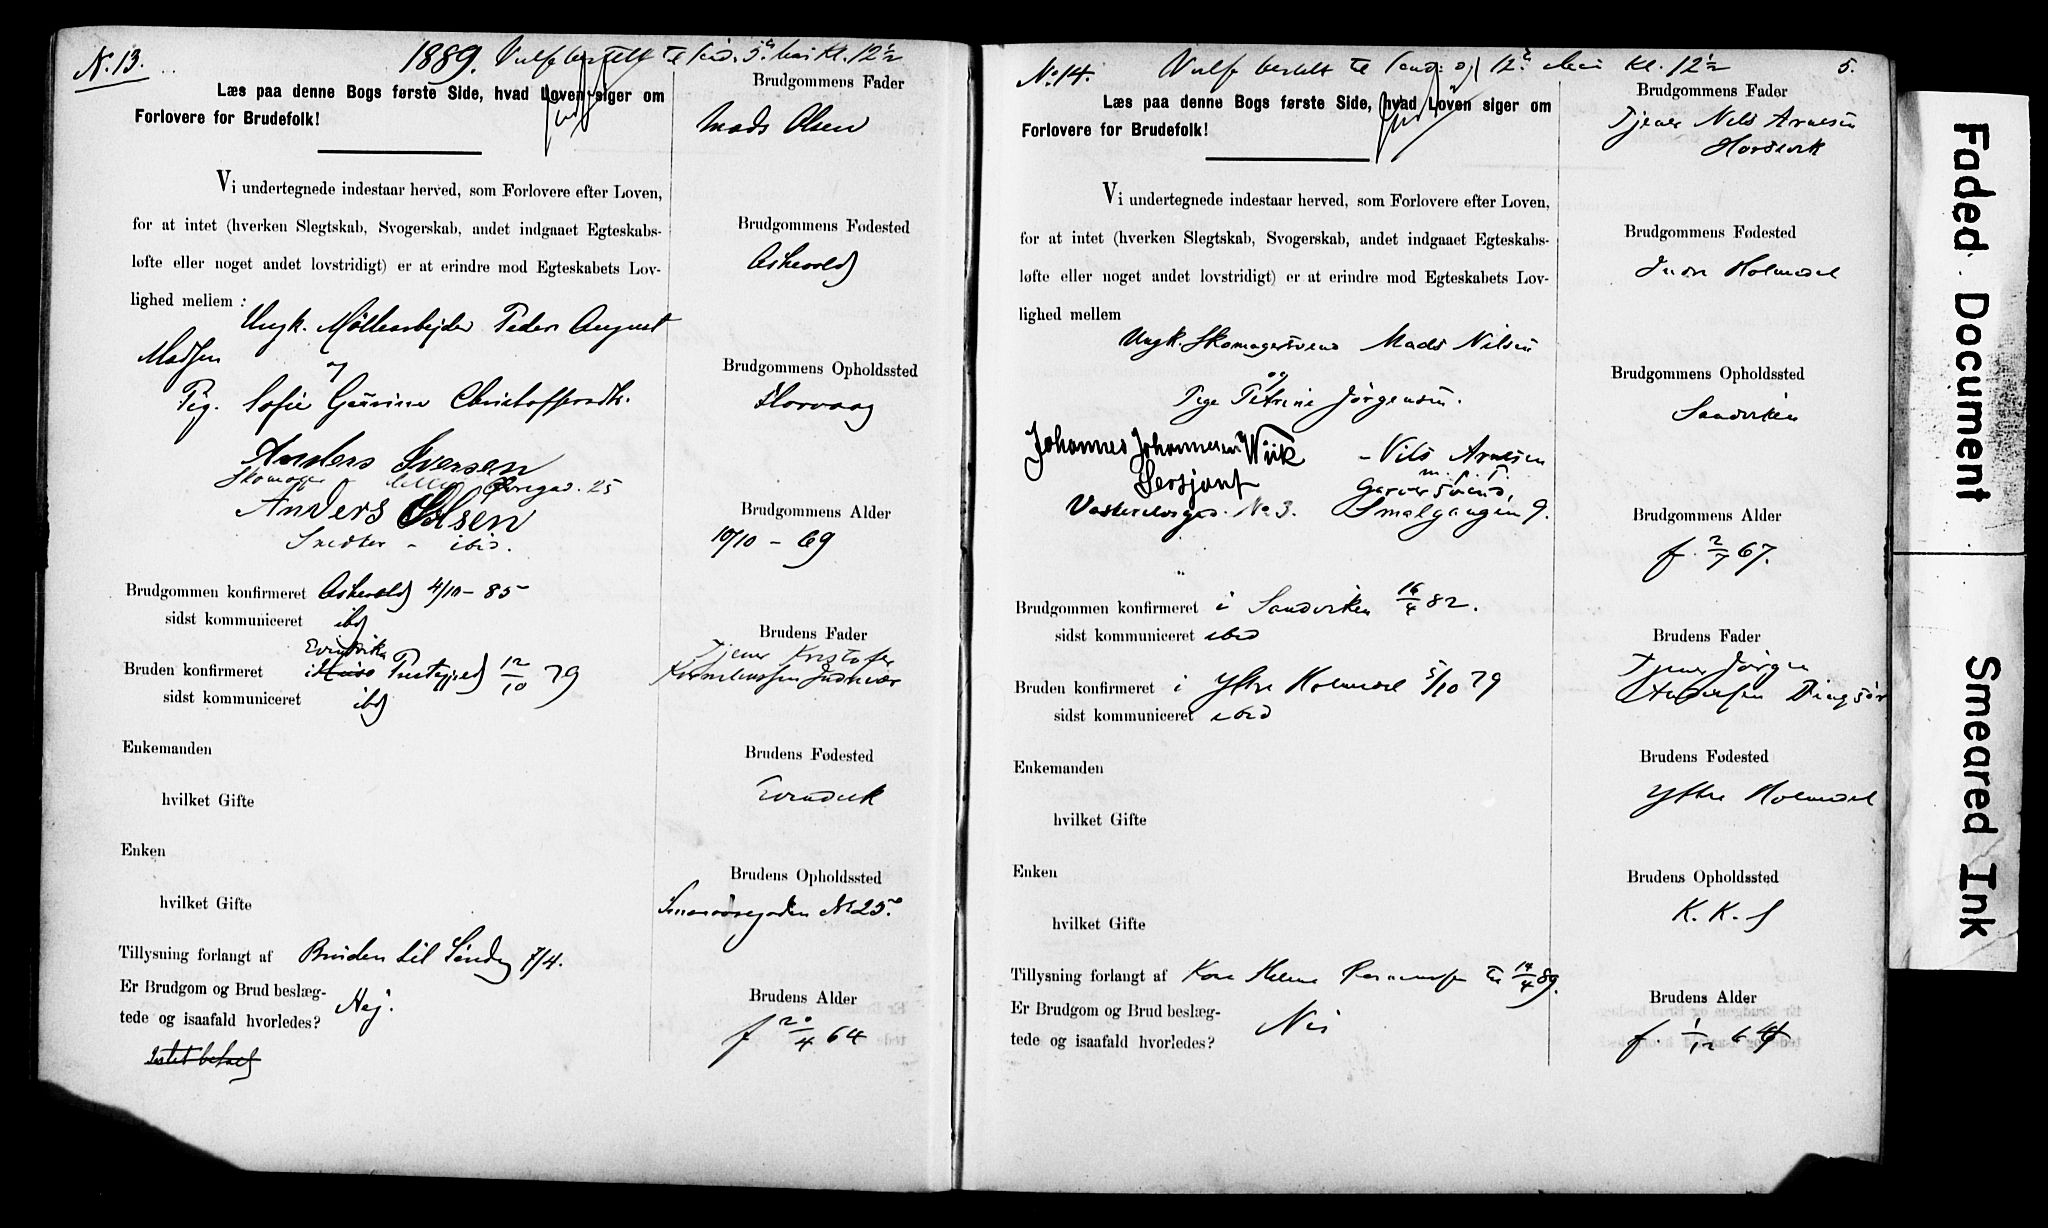 N. 13.
1889. Vielse bestilt til Sønd. 5te Mai Kl. 12 1/2
Læs paa denne Bogs første Side, hvad Loven siger om
Forlovere for Brudefolk!
Vi undertegnede indestaar herved, som Forlovere efter Loven,
for at intet (hverken Slegtskab, Svogerskab, andet indgaaet Egteskabs-
løfte eller noget andet lovstridigt) er at erindre mod Egteskabets Lov-
lighed mellem :
Ungk. Møllearbejder Peder August
Madsen
og
Pig. Sofie Christoffersdtr.
Anders Iversen
Skomager 25
Anders Olsen
Snedker - ibid.
Brudgommen konfirmeret Askevold 4/10 - 85
sidst kommuniceret ibd
Evindvik
Bruden konfirmeret i Præstegjeld 12/10 79
sidst kommuniceret ibd
Enkemanden
hvilket Gifte
Enken
hvilket Gifte
Tillysning forlangt af Bruden til Søndag 7/4.
Er Brudgom og Brud beslæg-
tede og isaafald hvorledes? Nej.
Intet betalt
Brudgommens Fader
Mads Olsen
Brudgommens Fødested
Askevold
Brudgommens Opholdssted
Storvaag
Brudgommens Alder
10/10 - 69
Brudens Fader
Tjener Kristofer
Brudens Fødested
Evindvik
Brudens Opholdssted
No 25.
Brudens Alder
f 20/4 64
No. 14.
Vielse bestilt til Sønd. 12te Mai Kl. 12 1/2
5.
Læs paa denne Bogs første Side, hvad Loven siger om
Forlovere for Brudefolk!
Vi undertegnede indestaar herved, som Forlovere efter Loven,
for at intet (hverken Slegtskab, Svogerskab, andet indgaaet Egteskabs-
løfte eller noget andet lovstridigt) er at erindre mod Egteskabets Lov-
lighed mellem
Ungk. Skomagersvend Mads Nilsen
og
Pige Petrine Jørgensen.
Johannes Johannesen Wiik
Sersjant
No 3.
- Nils Arnesen
m. p. P.
Garversvend,
Smalgangen 9.
Brudgommen konfirmeret i Sandviken 16/4 82.
sidst kommuniceret ibid
Bruden konfirmeret i Yttre Holmedal 5/10 79
sidst kommuniceret ibid
Enkemanden
hvilket Gifte
Enken
hvilket Gifte
Tillysning forlangt af Kone Helene Rasmussen til 14/4 89.
Er Brudgom og Brud beslæg-
tede og isaafald hvorledes? Nei
Brudgommens Fader
Tjener Nils Arnesen
Brudgommens Fødested
Indre Holmedal
Brudgommens Opholdssted
Sandviken
Brudgommens Alder
f. 2/7 67.
Brudens Fader
Tjener Jørgen
Andersen Dingsør
Brudens Fødested
Yttre Holmedal
Brudens Opholdssted
K. K. S
Brudens Alder
f. 1/12 64
Faded Document
Smeared Ink